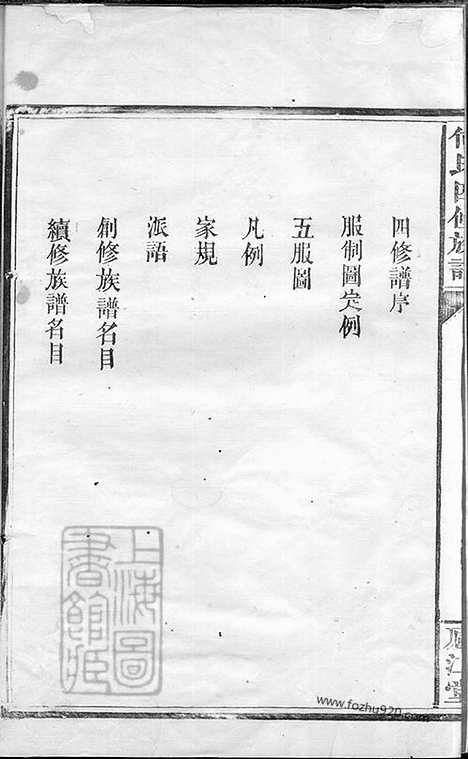 何氏四修族譜
廬江堂
四修譜序
服制圖定例
五服圖
凡例
家規
派語
創修族譜名目
續修族譜名目
上海圖
書館藏
www.fozhu920.com